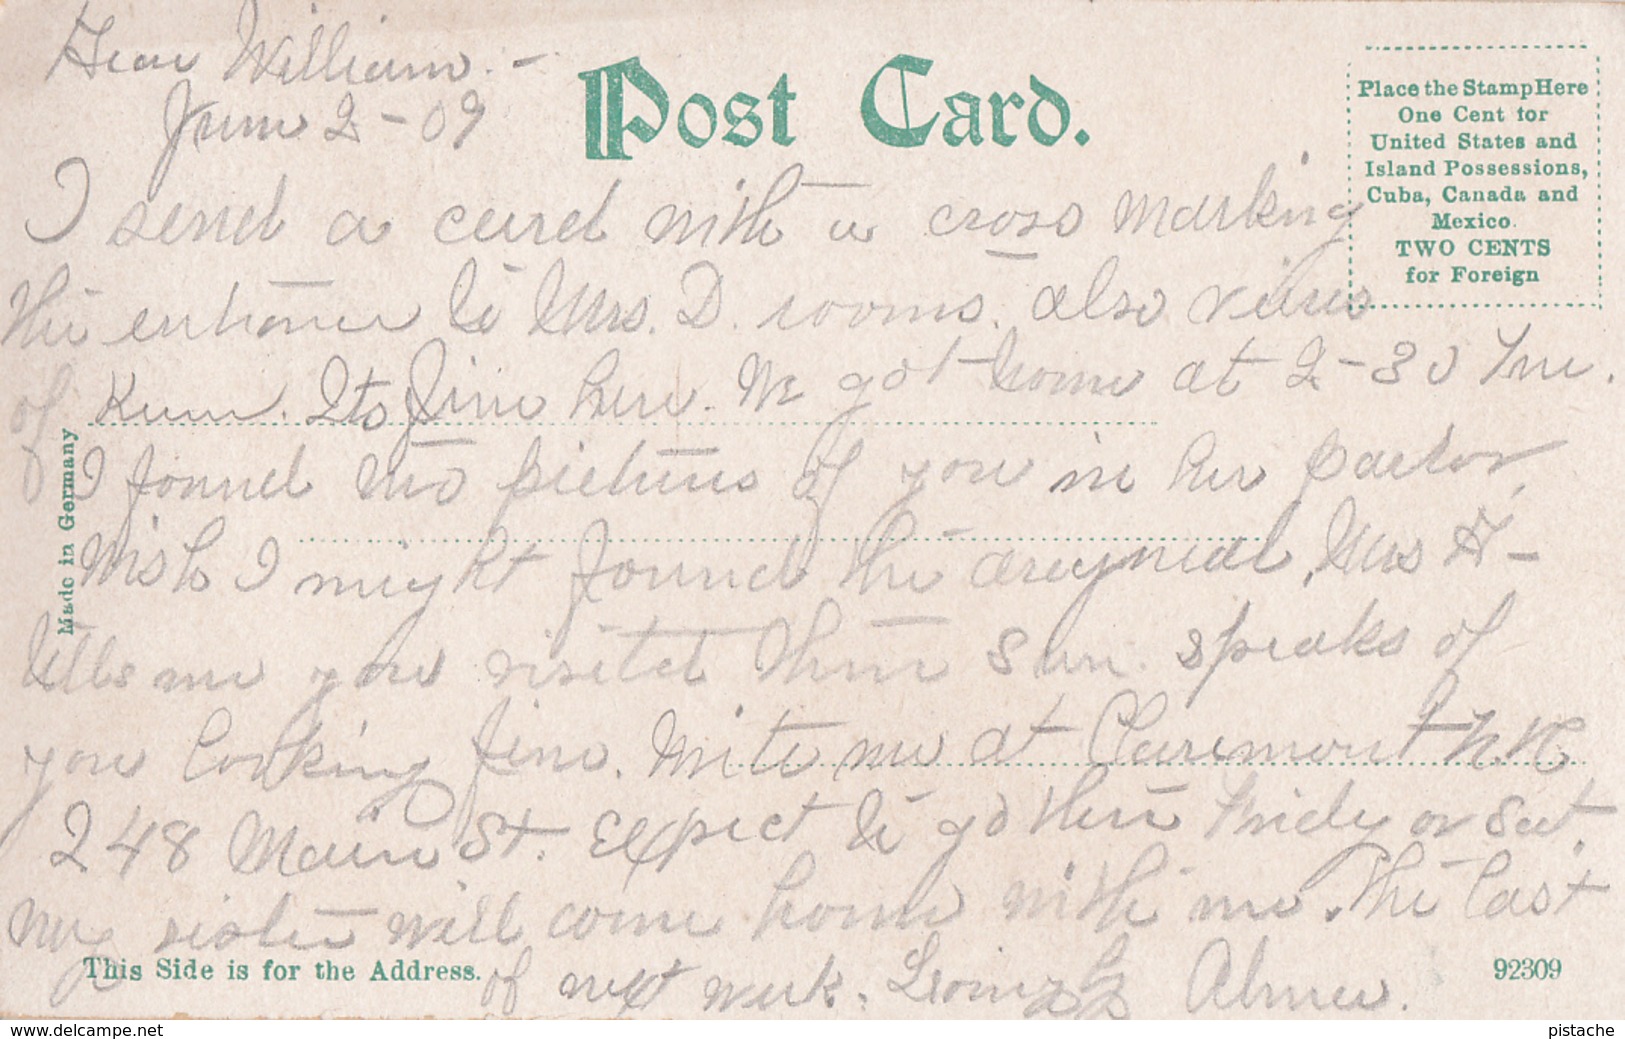 Dear William. -
June 2-09
Post Card.
Place the Stamp Here
One Cent for
United States and
Island Possessions,
Cuba, Canada and
Mexico.
TWO CENTS
for Foreign
I send a card with a cross marking
the entrance to Mrs. D. rooms. also views
of Keene. Its fine here. We got home at 2-30
I found two pictures of you in her parlor,
Wish I might found the areginal. Mrs H-
tells me you visited them Sun. speaks of
you looking fine. Write me at Claremont N.H.
248 Main St. Expect to go there Fridy or Sat.
My sister will come home with me. the last
of next week. Almee.
Made in Germany
This Side is for the Address.
92309
delcampe.net
pistache